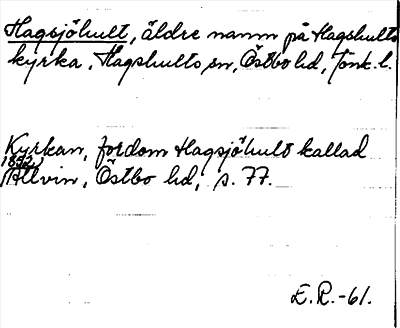 Hagsjöhult, äldre namn på Hagshults
kyrka, Hagshults sn, Östbo hd, Jönk. l.
Kyrkan, fordom Hagsjöhult kallad
1852
Allvin, Östbo hd, s. 77.
E.R.-61.